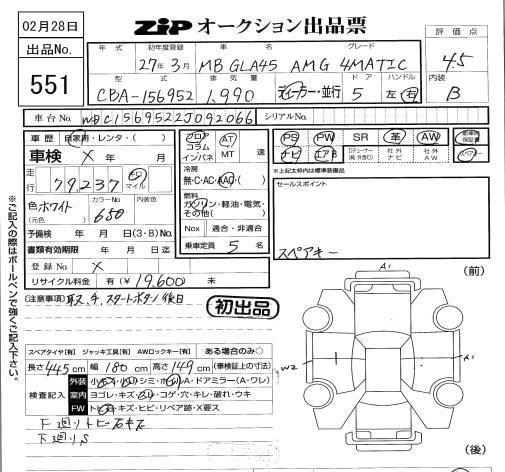 02月28日
出品No.
551
ZIP オークション出品票
評価点
4.5
内装
B
年式 初年度登録 車名 グレード
27年3月 MB GLA45 AMG 4MATIC
型式 排気量 ドア ハンドル
CBA-156952 1,990 ディーラー・並行 5 左 右
車台No. WDC1569522J092066 シリアルNo.
車歴 自家用・レンタ・( )
車検 × 年 月
走行 79,237 km マイル
色 ホワイト カラーNo. 650 内装色
(元色)
予備検 年 月 日(3・8)No.
書類有効期限 年 月 日迄
登録No. ×
リサイクル料金 有(¥19,600) 未
フロア コラム インパネ AT MT 速
冷房
無・C・AC・AAC・( )
燃料
ガソリン・軽油・電気・その他( )
Nox 適合・非適合
乗車定員 5 名
PS PW SR 革 AW
ナビ エアB
社外ナビ 社外AW
スペアキー
※上記太枠内は標準装備品
セールスポイント
スペアキー
(注意事項)取、スタートボタン 後日
初出品
※ご記入の際はボールペンで強くご記入下さい。
スペアタイヤ[有] ジャッキ工具[有] AWロックキー[有] ある場合のみ○
長さ 445cm 幅 180cm 高さ 149cm (車検証上の寸法)
検査記入
外装
室内 ヨゴレ・キズ・コゲ・穴・キレ・破れ・ウキ
FW トビ石・キズ・ヒビ・リペア跡・X要ス
F廻リトビ石キズ
下廻リS
(前)
A1
W2
A1
(後)